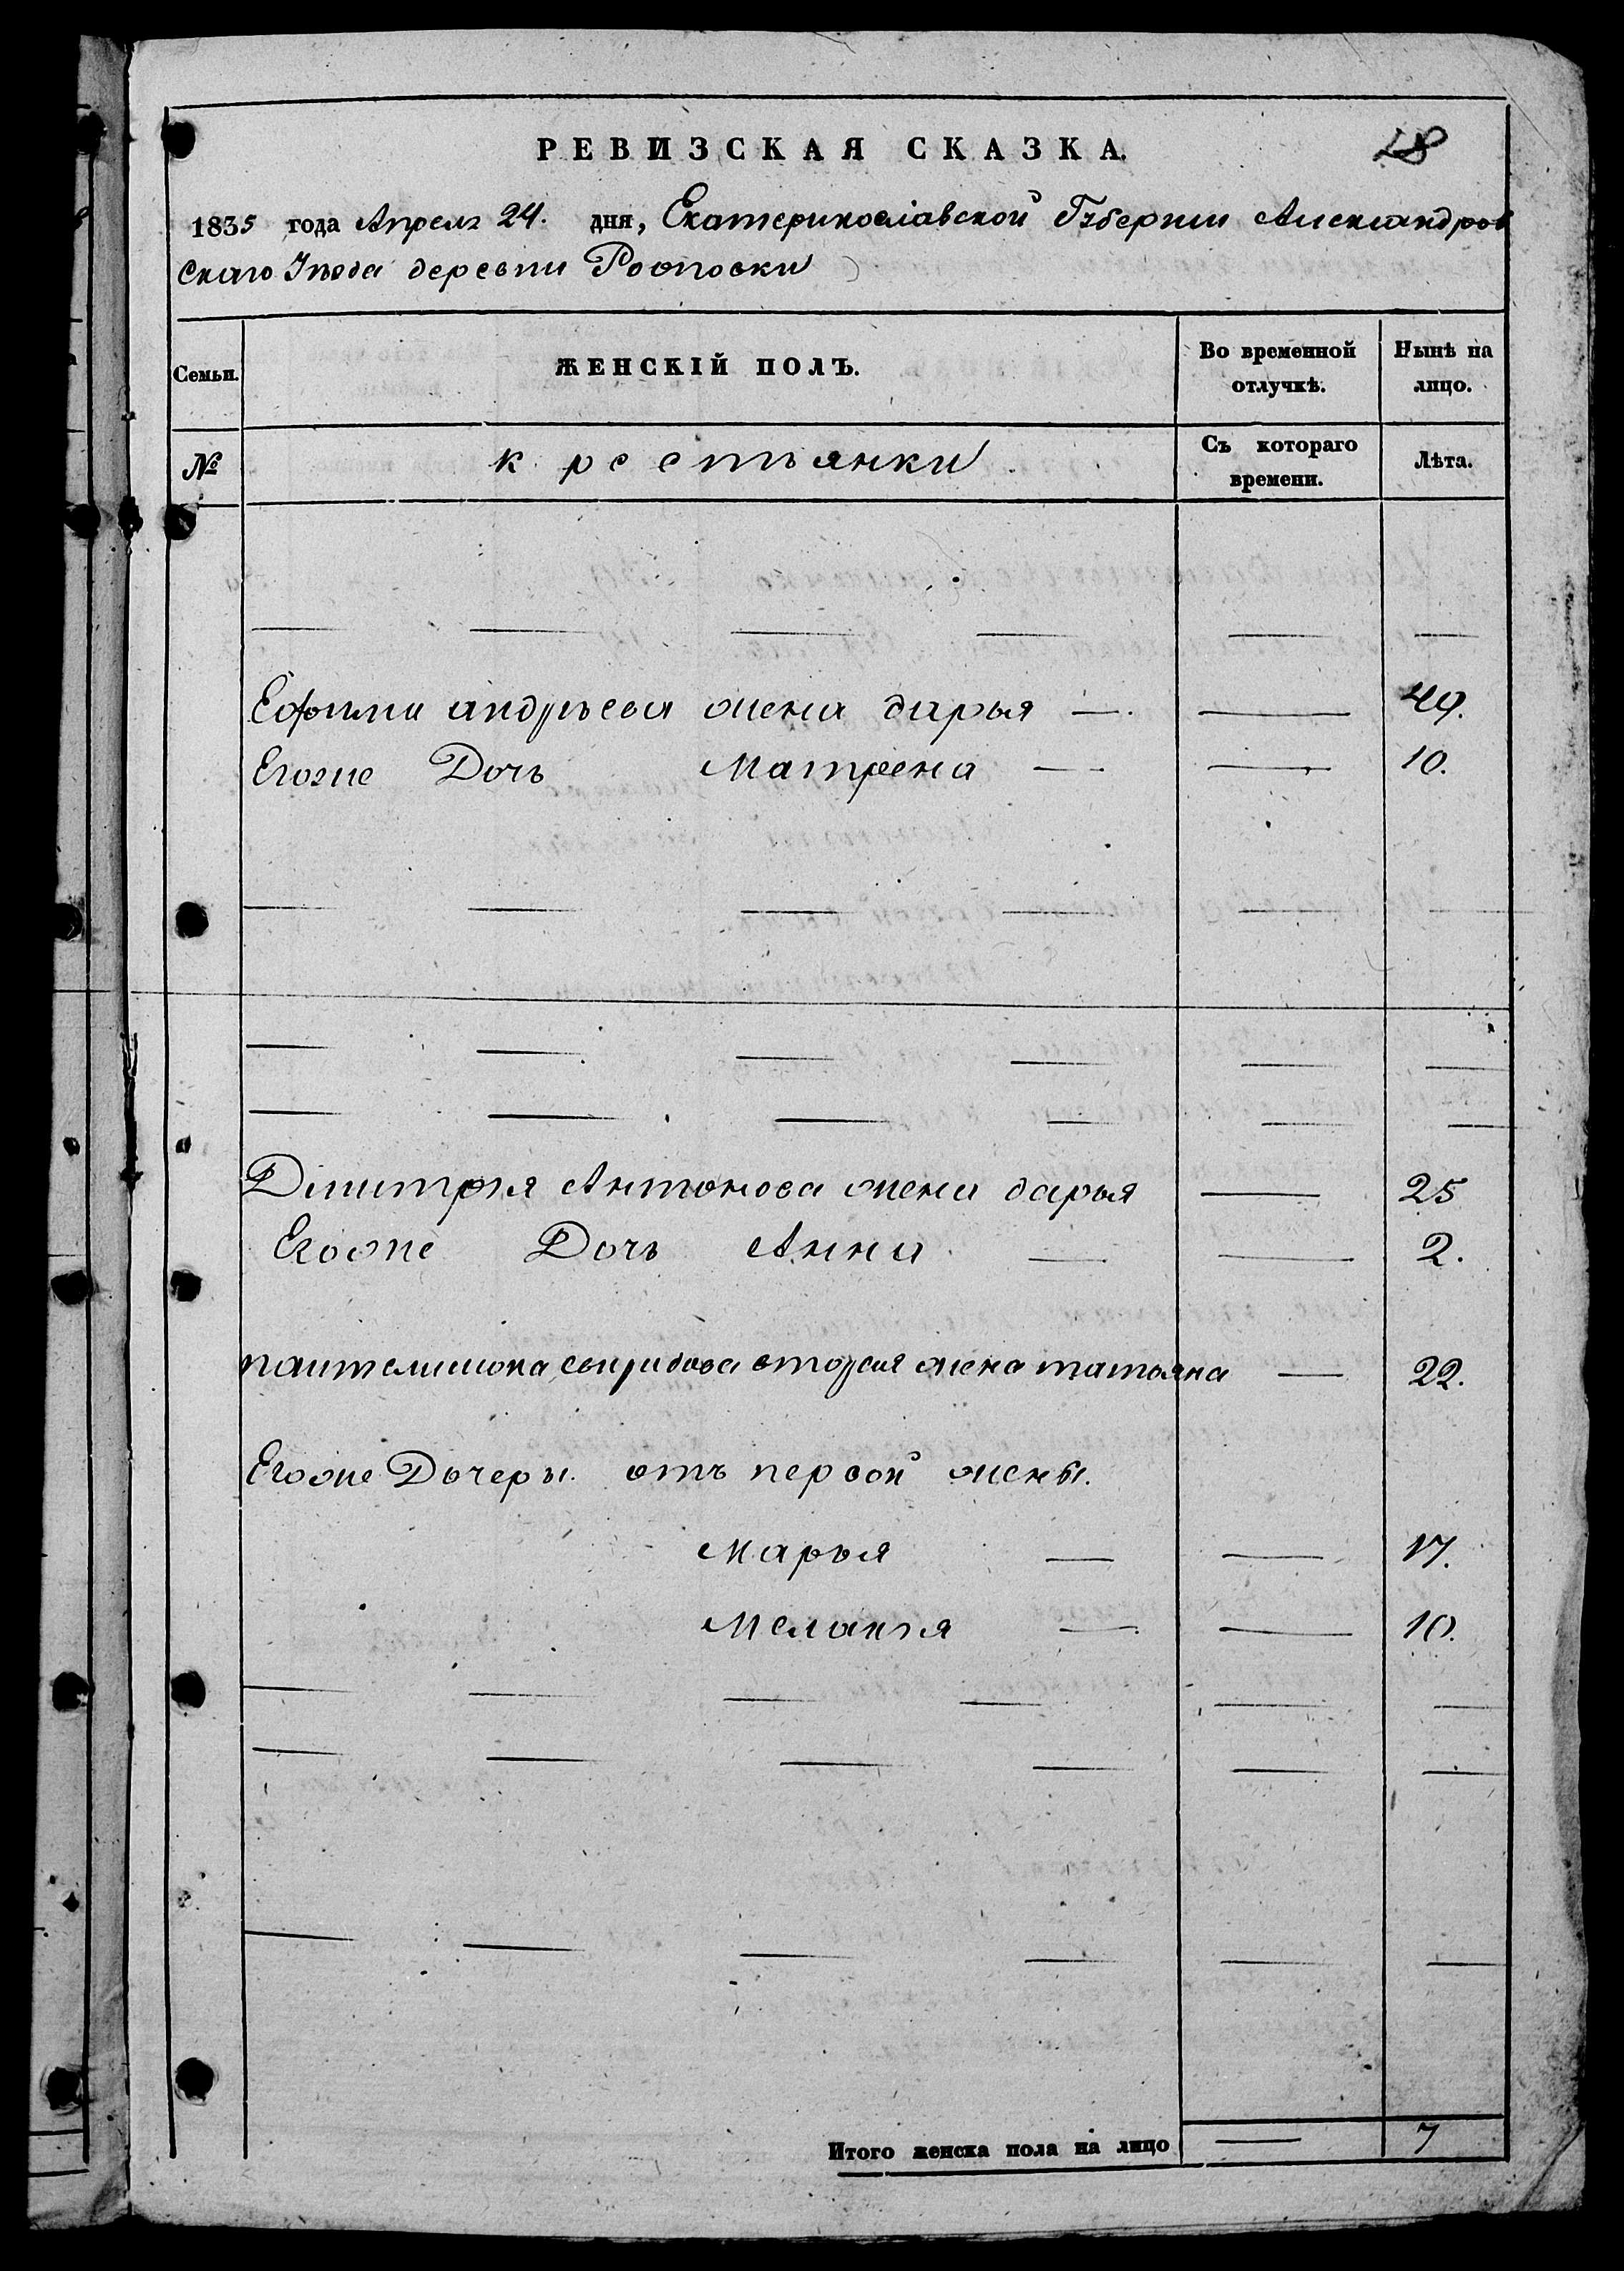 РЕВИЗСКАЯ СКАЗКА.
18
1835 года Апреля 24. дня, Екатеринославской Губернии Александров
скаго Уезда деревни
Семьи.
ЖЕНСКІЙ ПОЛЪ.
Во временной отлучкѣ.
Нынѣ на лицо.
№
крестьянки
Съ котораго времени.
Лѣта.
Ефима андрѣева жена дарья — — 49.
Егоже Дочь Матрена — — 10.
Дмитрія Антонова жена дарья — 25
Егоже Дочь Анна — — 2.
пантелимона свиридова вторая жена татьяна — 22.
Егоже Дочеры отъ первой жены.
Марья — — 17.
Меланья — — 10.
Итого женска пола на лицо — 7